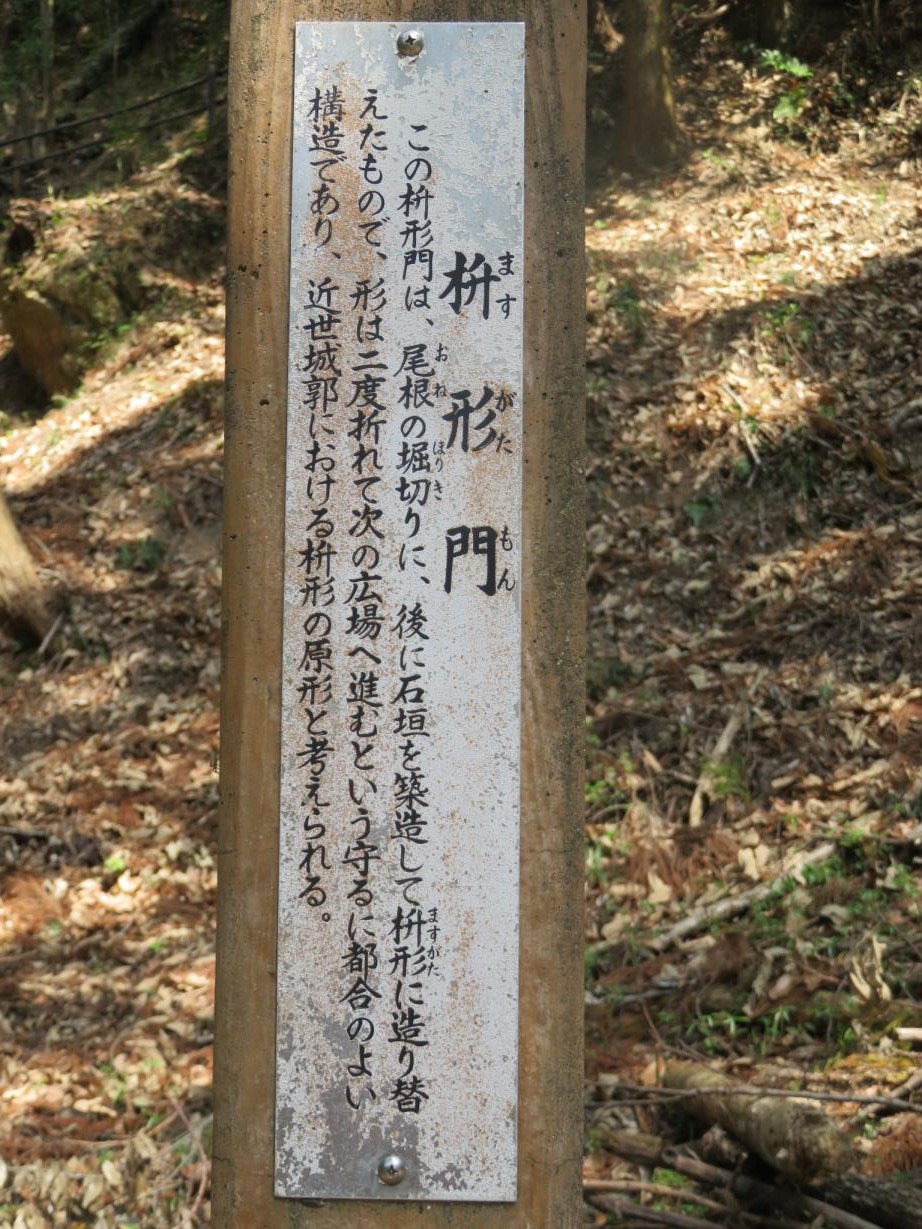 枡形門
ますがたもん
この枡形門は、尾根の堀切りに、後に石垣を築造して枡形に造り替
おねほりきますがた
えたもので、形は二度折れて次の広場へ進むという守るに都合のよい
構造であり、近世城郭における枡形の原形と考えられる。